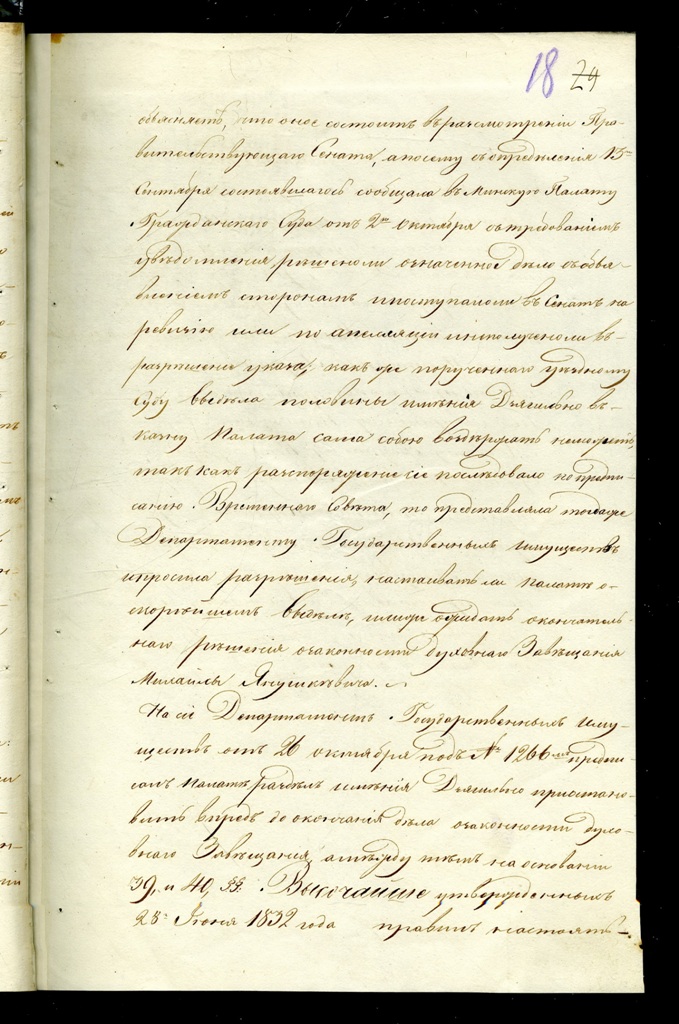 18 24
объясняетъ, что оное состоитъ въ разсмотреніи Пра-
вительствующаго Сената, а посему съ определенія 13го
Сентября состоявшагось сообщала въ Минскую Палату
Гражданскаго Суда отъ 2го октября съ требованіемъ
увѣдомленія рѣшеноли означенное дѣло съ объя-
вленіемъ сторонамъ и поступилоли въ Сенатъ на
ревизію или по апелляціи и неполученоли въ
разрѣшеніе указа; какъ же порученнаго уѣздному
Суду въ половины имѣнія Дягильно въ
казну Палата сама собою воздержать неможетъ,
такъ какъ разпоряженіе сіе послѣдовало по предпи-
санію Временнаго Совѣта, то представляла тогдаже
Департаменту Государственныхъ Имуществъ
и просила разрѣшенія, настаивать ли Палатѣ о-
скорѣйшемъ выдѣлѣ, илиже ожидать окончатель-
наго рѣшенія о законности духовнаго Завѣщанія
Михайлы Янушкевича.
На сіе Департаментъ Государственныхъ Иму-
ществъ отъ 26 октября подъ № 1266мъ предпи-
салъ Палатѣ, раздѣлъ имѣнія Дягильно пріостано-
вить впредь до окончанія дѣла о законности духо-
внаго Завѣщанія, а между тѣмъ на основаніи
39. и 40. §§. Высочайше утвержденныхъ
28го Іюня 1832 года правилъ настоять